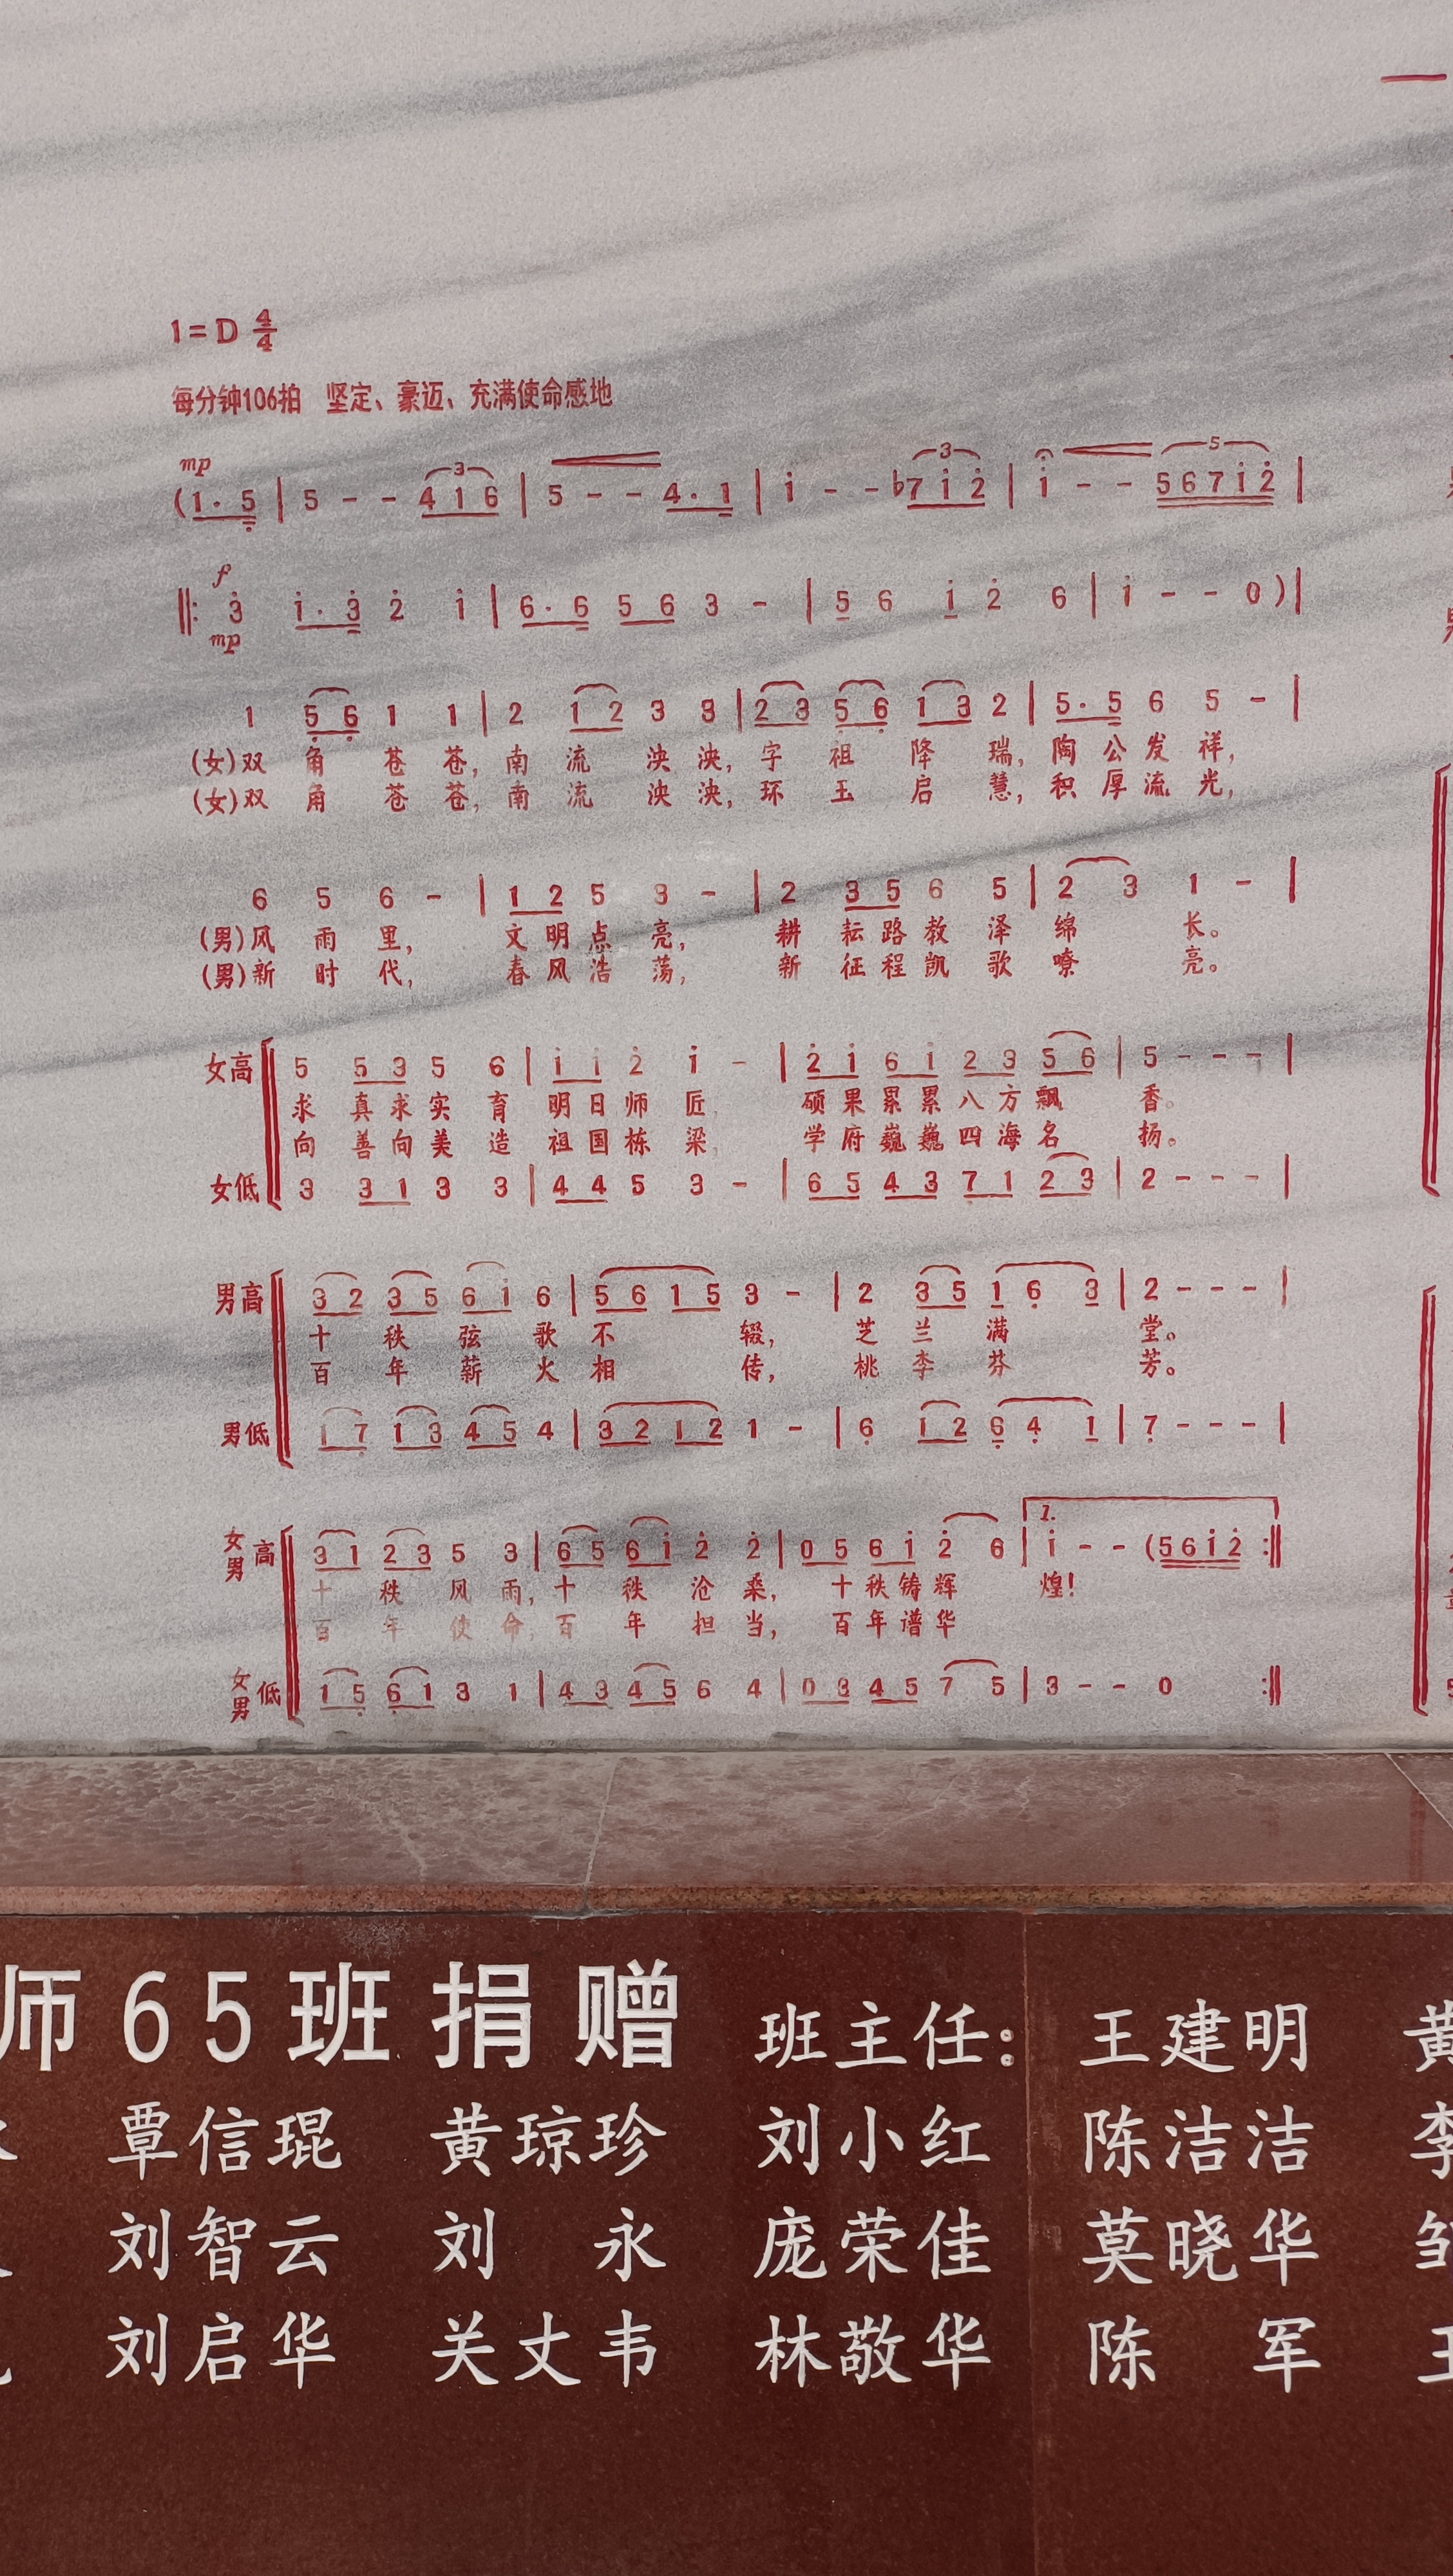 1=D 4/4
每分钟106拍 坚定、豪迈、充满使命感地
mp
3 3 5
(1· 5 | 5 - - 4 1 6 | 5 - - 4· 1 | i - - ♭7 i 2̇ | i - - 5 6 7 i 2̇ |
f
‖: 3̇ i· 3̇ 2̇ i | 6· 6 5 6 3 - | 5 6 i 2̇ 6 | i - - 0 ) |
mp
1 5̣ 6̣ 1 1 | 2 1 2 3 3 | 2 3 5̣ 6̣ 1 3 2 | 5· 5 6 5 - |
(女)双 角 苍 苍, 南 流 泱 泱, 字 祖 降 瑞, 陶 公 发 祥,
(女)双 角 苍 苍, 南 流 泱 泱, 环 玉 启 慧, 积 厚 流 光,
6 5 6 - | 1 2 5 3 - | 2 3 5 6 5 | 2 3 1 - |
(男)风 雨 里, 文 明 点 亮, 耕 耘 路 教 泽 绵 长。
(男)新 时 代, 春 风 浩 荡, 新 征 程 凯 歌 嘹 亮。
女高 5 5 3 5 6 | i i 2̇ i - | 2̇ i 6 i 2̇ 3̇ 5 6 | 5 - - - |
求 真 求 实 育 明 日 师 匠, 硕 果 累 累 八 方 飘 香。
向 善 向 美 造 祖 国 栋 梁, 学 府 巍 巍 四 海 名 扬。
女低 3 3 1 3 3 | 4 4 5 3 - | 6 5 4 3 7 1 2 3 | 2 - - - |
男高 3 2 3 5 6 i 6 | 5 6 1 5 3 - | 2 3 5 1 6̣ 3 | 2 - - - |
十 秩 弦 歌 不 辍, 芝 兰 满 堂。
百 年 薪 火 相 传, 桃 李 芬 芳。
男低 1 7̣ 1 3 4 5 4 | 3 2 1 2 1 - | 6̣ 1 2 6̣ 4̣ 1 | 7̣ - - - |
1.
女男高 3 1 2 3 5 3 | 6 5 6 i 2̇ 2̇ | 0 5 6 i 2̇ 6 | i - - (5 6 i 2̇ :‖
十 秩 风 雨, 十 秩 沧 桑, 十 秩 铸 辉 煌!
百 年 使 命, 百 年 担 当, 百 年 谱 华
女男低 1 5̣ 6̣ 1 3 1 | 4 3 4 5 6 4 | 0 3 4 5 7 5 | 3 - - 0 :‖
师65班捐赠 班主任: 王建明 黄
覃信琨 黄琼珍 刘小红 陈洁洁 李
刘智云 刘永 庞荣佳 莫晓华 邹
刘启华 关丈韦 林敬华 陈军 王